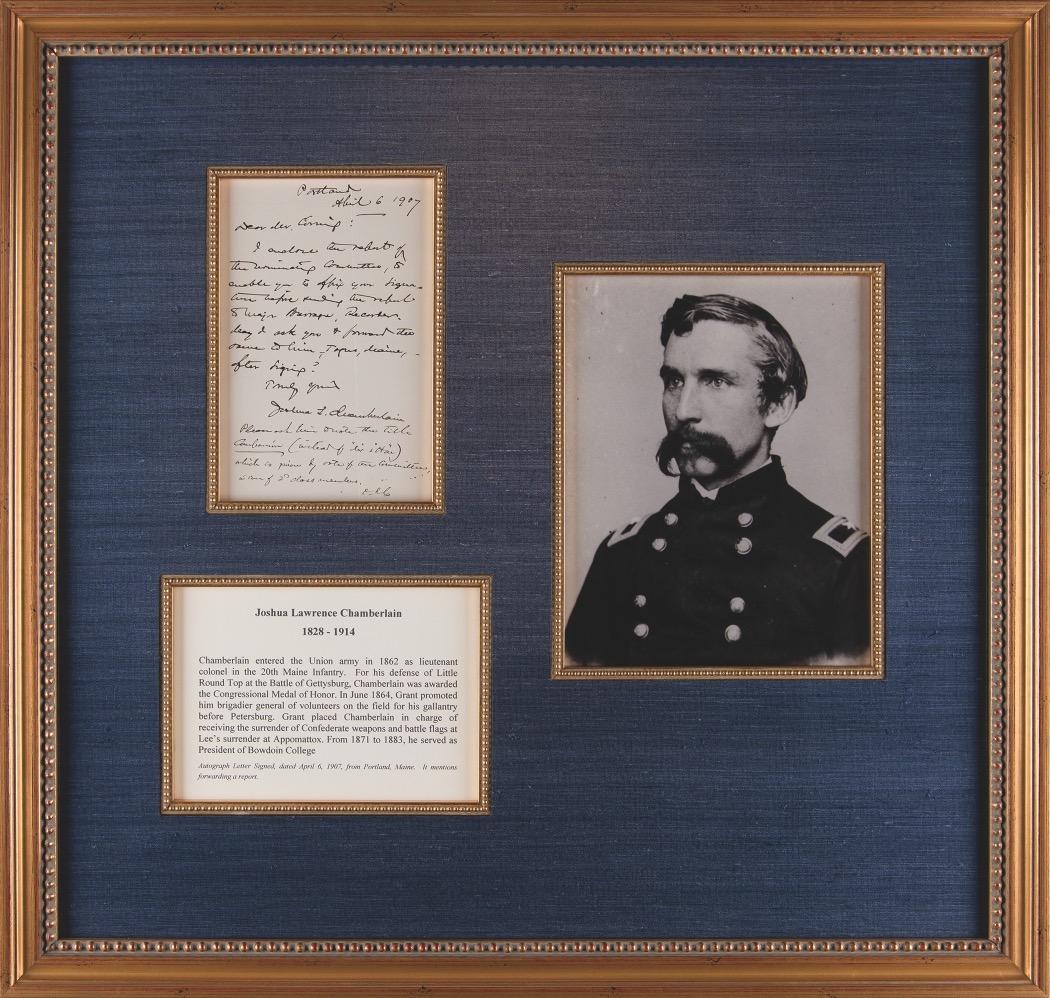 Portland
April 6 1907
Dear Mr. Corning:
I enclose the report of
the nominating Committee, to
enable you to affix your signa-
ture before sending the report
to Major Burrage, Recorder.
May I ask you to forward the
same to him, Togus, Maine, -
after signing?
Truly yours
Joshua L. Chamberlain
Please ask him to note the title
Companion (instead of
which is given by vote of the Committee,
class members.
Joshua Lawrence Chamberlain
1828 - 1914
Chamberlain entered the Union army in 1862 as lieutenant
colonel in the 20th Maine Infantry. For his defense of Little
Round Top at the Battle of Gettysburg, Chamberlain was awarded
the Congressional Medal of Honor. In June 1864, Grant promoted
him brigadier general of volunteers on the field for his gallantry
before Petersburg. Grant placed Chamberlain in charge of
receiving the surrender of Confederate weapons and battle flags at
Lee's surrender at Appomattox. From 1871 to 1883, he served as
President of Bowdoin College
Autograph Letter Signed, dated April 6, 1907, from Portland, Maine. It mentions
forwarding a report.